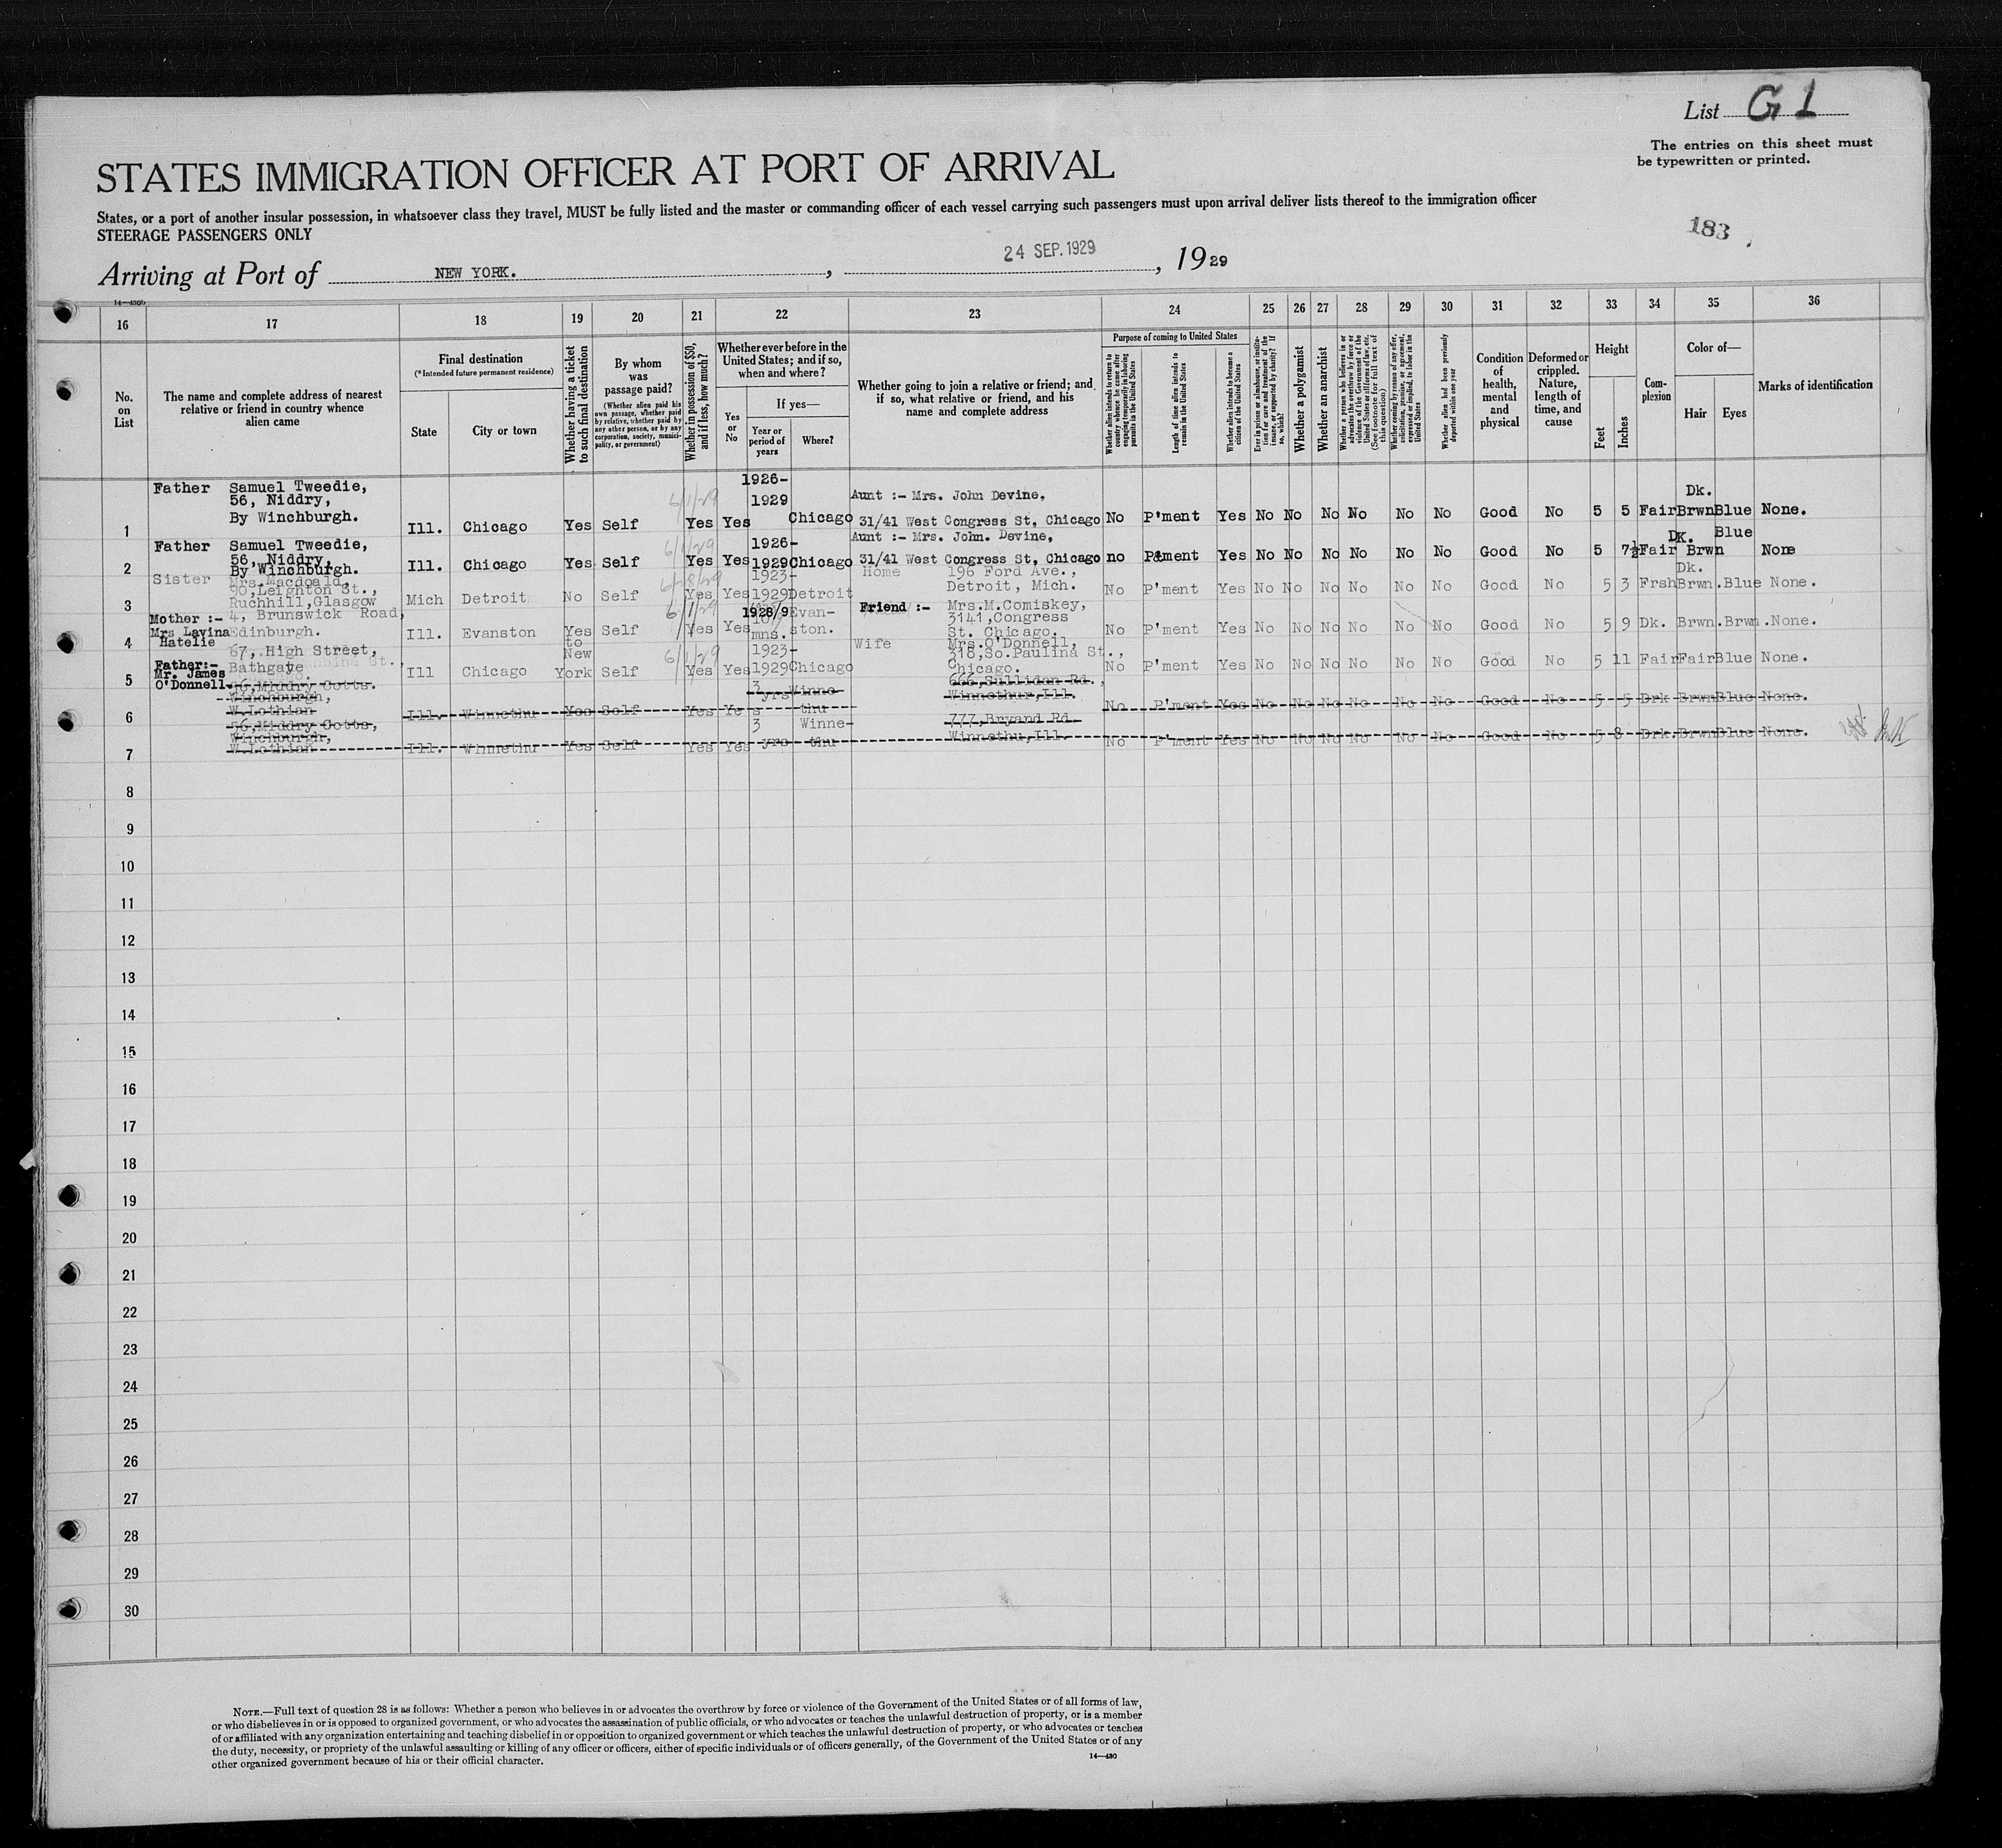 List G 1
The entries on this sheet must
be typewritten or printed.
STATES IMMIGRATION OFFICER AT PORT OF ARRIVAL
States, or a port of another insular possession, in whatsoever class they travel, MUST be fully listed and the master or commanding officer of each vessel carrying such passengers must upon arrival deliver lists thereof to the immigration officer
STEERAGE PASSENGERS ONLY
183
Arriving at Port of NEW YORK. , 24 SEP. 1929 , 1929
14—430b
16 17 18 19 20 21 22 23 24 25 26 27 28 29 30 31 32 33 34 35 36
No.
on
List
The name and complete address of nearest
relative or friend in country whence
alien came
Final destination
(*Intended future permanent residence)
State
City or town
Whether having a ticket
to such final destination
By whom
was
passage paid?
(Whether alien paid his
own passage, whether paid
by relative, whether paid by
any other person, or by any
corporation, society, munici-
pality, or government)
Whether in possession of $50,
and if less, how much?
Whether ever before in the
United States; and if so,
when and where?
Yes
or
No
If yes—
Year or
period of
years
Where?
Whether going to join a relative or friend; and
if so, what relative or friend, and his
name and complete address
Purpose of coming to United States
Whether alien intends to return to
country whence he came after
engaging temporarily in laboring
pursuits in the United States
Length of time alien intends to
remain in the United States
Whether alien intends to become a
citizen of the United States
Ever in prison or almshouse, or institu-
tion for care and treatment of the
insane, or supported by charity? If
so, which?
Whether a polygamist
Whether an anarchist
Whether a person who believes in or
advocates the overthrow by force or
violence of the Government of the
United States or all forms of law, etc.
(See footnote for full text of
this question)
Whether coming by reason of any offer,
solicitation, promise, or agreement,
expressed or implied, to labor in the
United States
Whether alien had been previously
deported within one year
Condition
of
health,
mental
and
physical
Deformed or
crippled.
Nature,
length of
time, and
cause
Height
Feet
Inches
Com-
plexion
Color of—
Hair
Eyes
Marks of identification
Father Samuel Tweedie,
56, Niddry,
By Winchburgh.
1 Ill. Chicago Yes Self 6/1/29 Yes Yes 1926-
1929 Chicago
Aunt :- Mrs. John Devine,
31/41 West Congress St, Chicago No P'ment Yes No No No No No No Good No 5 5 Fair Dk.
Brwn Blue None.
Father Samuel Tweedie,
56, Niddry,
By Winchburgh.
2 Ill. Chicago Yes Self 6/1/29 Yes Yes 1926-
1929 Chicago
Aunt :- Mrs. John. Devine,
31/41 West Congress St, Chicago no P&ment Yes No No No No No No Good No 5 7½ Fair DK.
Brwn Blue None
Sister Mrs. Macdoald,
90, Leighton St.,
Ruchhill, Glasgow
3 Mich Detroit No Self 6/28/29 Yes Yes 1923-
1929 Detroit
Home 196 Ford Ave.,
Detroit, Mich. No P'ment Yes No No No No No No Good No 5 3 Frsh Dk.
Brwn. Blue None.
Mother :- 4, Brunswick Road,
Mrs Lavina Edinburgh.
Hatelie
4 Ill. Evanston Yes Self 6/1/29 Yes Yes 1928/9
mns. Evan-
ston.
Friend :- Mrs. M. Comiskey,
3141, Congress
St. Chicago. No P'ment Yes No No No No No No Good No 5 9 Dk. Brwn. Brwn. None.
67, High Street,
Father:- Bathgate
Mr. James
O'Donnell.
5 Ill Chicago to
New
York Self 6/1/29 Yes Yes 1923-
1929 Chicago
Wife Mrs. O'Donnell,
318, So. Paulina St.,
Chicago. No P'ment Yes No No No No No No Good No 5 11 Fair Fair Blue None.
56, Niddry Cotts.
Winchburgh,
W. Lothian
6 Ill. Winnethu Yes Self Yes Yes 3
yrs Winne-
thu
666, Sullidan Rd.,
Winnethur, Ill.
No P'ment Yes No No No No No No Good No 5 5 Drk Brwn Blue None.
56, Niddry Cotts,
Winchburgh,
W. Lothian
7 Ill. Winnethu Yes Self Yes Yes 3
yrs Winne-
thu
777, Bryand Rd.
Winnethu, Ill.
No P'ment Yes No No No No No No Good No 5 8 Drk. Brwn Blue None.
8
9
10
11
12
13
14
15
16
17
18
19
20
21
22
23
24
25
26
27
28
29
30
NOTE.—Full text of question 28 is as follows: Whether a person who believes in or advocates the overthrow by force or violence of the Government of the United States or of all forms of law,
or who disbelieves in or is opposed to organized government, or who advocates the assassination of public officials, or who advocates or teaches the unlawful destruction of property, or is a member
of or affiliated with any organization entertaining and teaching disbelief in or opposition to organized government or which teaches the unlawful destruction of property, or who advocates or teaches
the duty, necessity, or propriety of the unlawful assaulting or killing of any officer or officers, either of specific individuals or of officers generally, of the Government of the United States or of any
other organized government because of his or their official character.
14—430